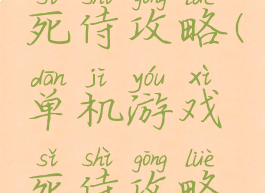 sǐ shì gōng lüè
死侍攻略(
dān jī yóu xì
单机游戏
sǐ shì gōng lüè
死侍攻略